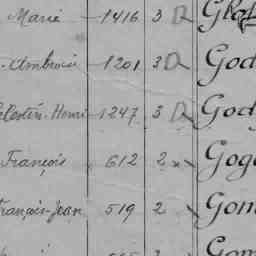 Marie 1416 3 D
Ambroise 1201 3 D God
Célestin-Henri 1247 3 D God
François 612 2 Gog
François-Jean 519 2 Gon
Gom